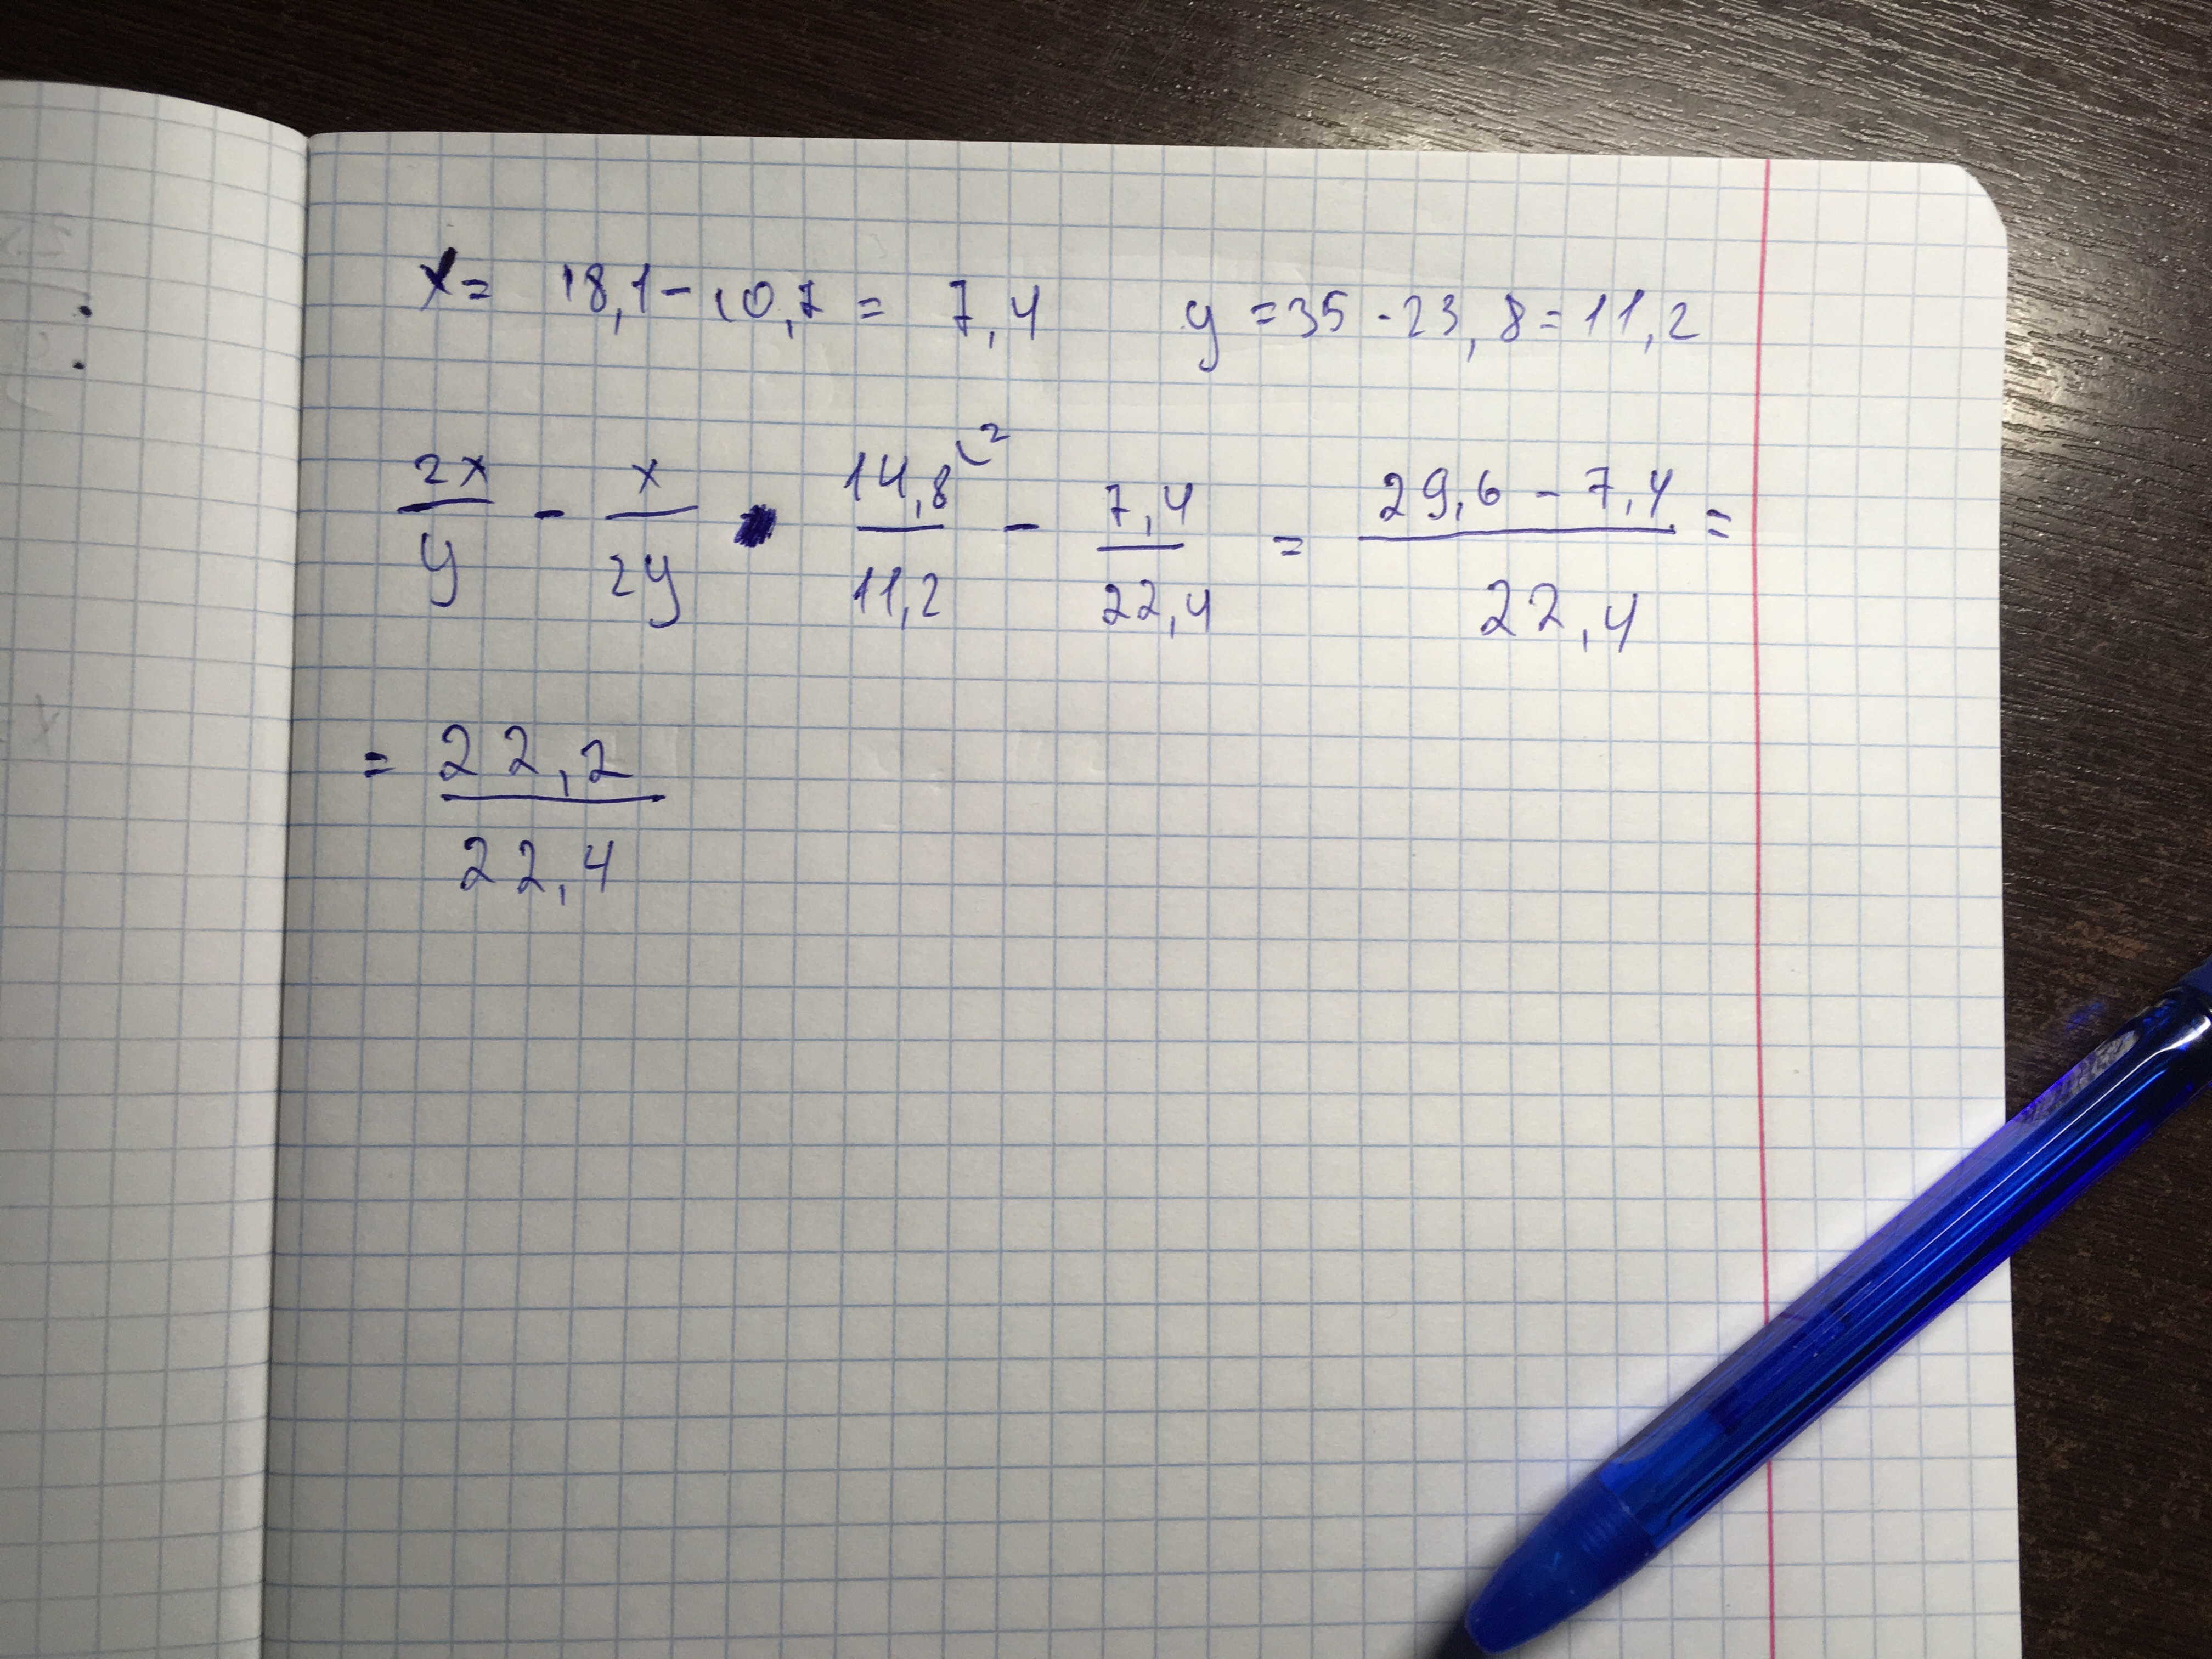 x = 18,1 - 10,7 = 7,4 y = 35 - 23,8 = 11,2
2x/y - x/2y 14,8^(2/11,2 - 7,4/22,4 = 29,6 - 7,4/22,4 =
= 22,2/22,4